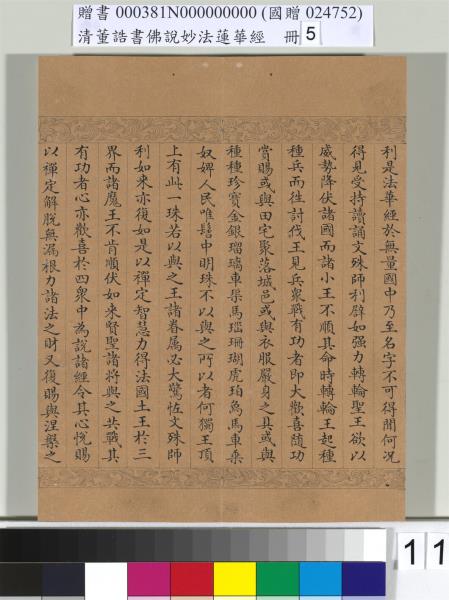 贈書 000381N000000000 (國贈 024752)
清董誥書佛說妙法蓮華經 冊 5
利是法華經於無量國中乃至名字不可得聞何況
得見受持讀誦文殊師利辟如强力轉輪聖王欲以
威勢降伏諸國而諸小王不順其命時轉輪王起種
種兵而徃討伐王見兵衆戰有功者即大歡喜隨功
賞賜或與田宅聚落城邑或與衣服嚴身之具或與
種種珍寶金銀瑠璃車渠馬瑙珊瑚虎珀象馬車乘
奴婢人民唯髻中明珠不以與之所以者何獨王頂
上有此一珠若以與之王諸眷属必大驚恠文殊師
利如来亦復如是以禪定智慧力得法國土王於三
界而諸魔王不肯順伏如来賢聖諸將與之共戰其
有功者心亦歡喜於四衆中為說諸經令其心悅賜
以禪定解脫無漏根力諸法之財又復賜與涅槃之
11